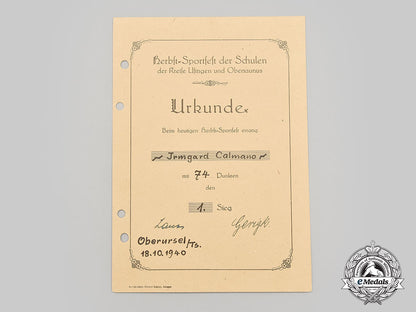 Herbst-Sportfest der Schulen
der Kreise Usingen und Obertaunus
Urkunde
Beim heutigen Herbst-Sportfest errang
Irmgard Calmano
mit 74 Punkten
den
1. Sieg
Oberursel/Ts.
18.10.1940
eMedals